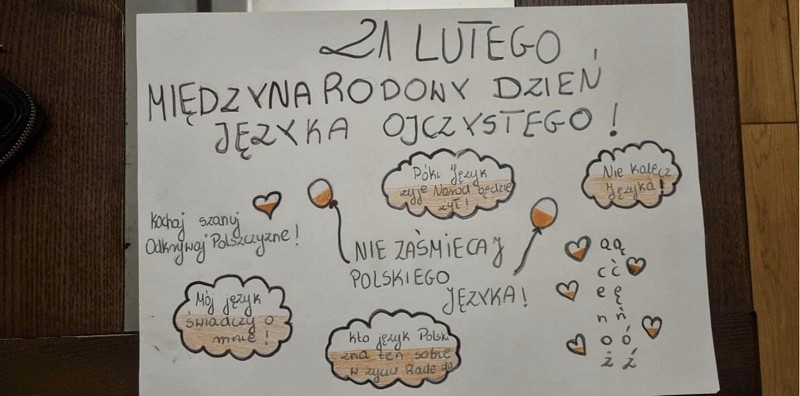 21 LUTEGO
MIĘDZYNARODOWY DZIEŃ
JĘZYKA OJCZYSTEGO!
Póki Język
żyje Naród będzie
żył!
Nie kalecz
Języka!
Kochaj szanuj
Odkrywaj Polszczyzne!
NIE ZAŚMIECAJ
POLSKIEGO
JĘZYKA!
Mój język
świadczy o
mnie!
kto język Polski
zna ten sobie
w życiu Rade da
a ą
c ć
e ę
n ń
o ó
ż ź